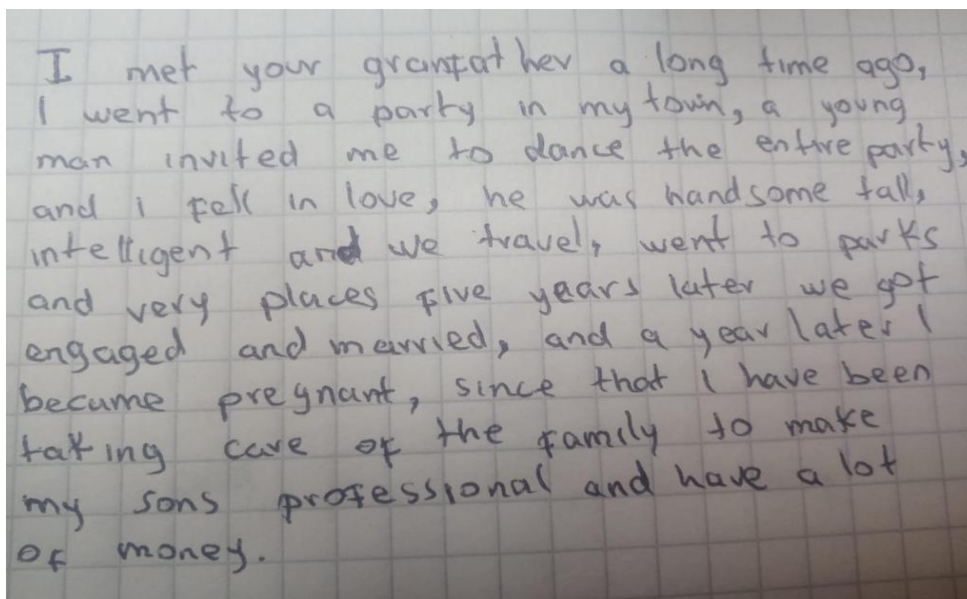 I met your granfather a long time ago,
I went to a party in my town, a young
man invited me to dance the entire party,
and i fell in love, he was handsome tall,
intelligent and we travel, went to parks
and very places five years later we got
engaged and married, and a year later I
became pregnant, since that I have been
taking care of the family to make
my sons professional and have a lot
of money.